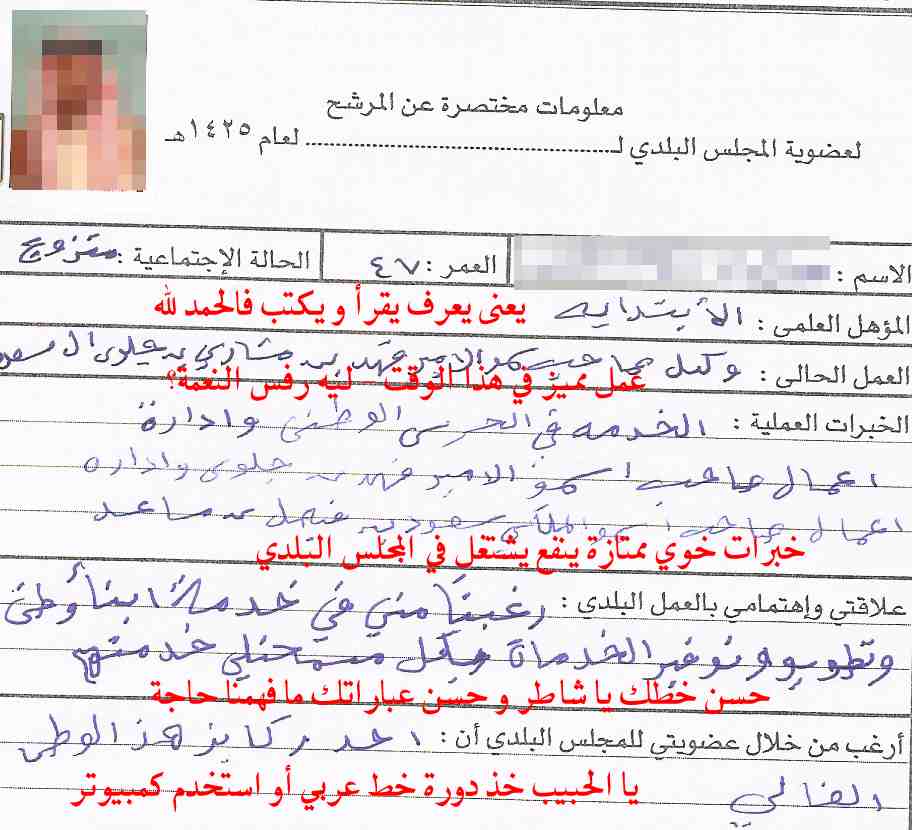 معلومات مختصرة عن المرشح
لعضوية المجلس البلدي لـ.................................................. لعام ١٤٢٥هـ
الاسم :
العمر : ٤٧
الحالة الإجتماعية : متزوج
المؤهل العلمى : الأبتدايه
يعنى يعرف يقرأ و يكتب فالحمد لله
العمل الحالى : وكيل صاحب سمو الامير فهد بن مشاري بن جلوي ال سعود
عمل مميز في هذا الوقت - ليه رفس النعمة؟
الخبرات العملية : الخدمه في الحرس الوطني وادارة
اعمال صاحب سمو الامير فهد بن جلوي واداره
اعمال صاحب السمو الملكي سعود بن فيصل بن ساعد
خبرات خوي ممتازة ينفع يشتغل في المجلس البلدي
علاقتي وإهتمامي بالعمل البلدي : رغبتا مني في خدمة ابنا وطني
وتطوير و توفير الخدماة خدمتهم
حسن خطك يا شاطر و حسن عباراتك ما فهمنا حاجة
أرغب من خلال عضويتي للمجلس البلدي أن : احد ركايز هذ الوطن
الغالي
يا الحبيب خذ دورة خط عربي أو استخدم كمبيوتر